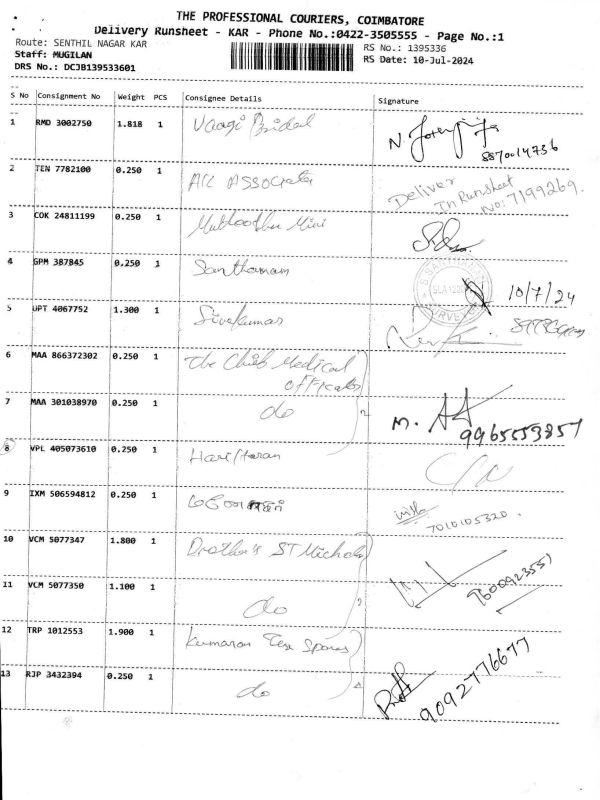 THE PROFESSIONAL COURIERS, COIMBATORE
Delivery Runsheet - KAR - Phone No.:0422-3505555 - Page No.:1
Route: SENTHIL NAGAR KAR
RS No.: 1395336
Staff: MUGILAN
RS Date: 10-Jul-2024
DRS No.: DCJB139533601
S No Consignment No Weight PCS Consignee Details Signature
1 RMD 3002750 1.818 1 Vaagi Bridal
8870014736
2 TEN 7782100 0.250 1 Associates
Deliver
In Runsheet
No: 7199269.
3 COK 24811199 0.250 1 Mini
4 GPM 387845 0.250 1 Santhanam
10/7/24
5 UPT 4067752 1.300 1 Sivakumar
6 MAA 866372302 0.250 1 The Chief Medical
7 MAA 301038970 0.250 1 do
M.
9965553857
8 VPL 405073610 0.250 1 Hariharan
9 IXM 506594812 0.250 1
7010105320
10 VCM 5077347 1.800 1 Brother's ST Michael
9600923551
11 VCM 5077350 1.100 1 do
12 TRP 1012553 1.900 1 Kumaran Tex
13 RJP 3432394 0.250 1 do
9092776677